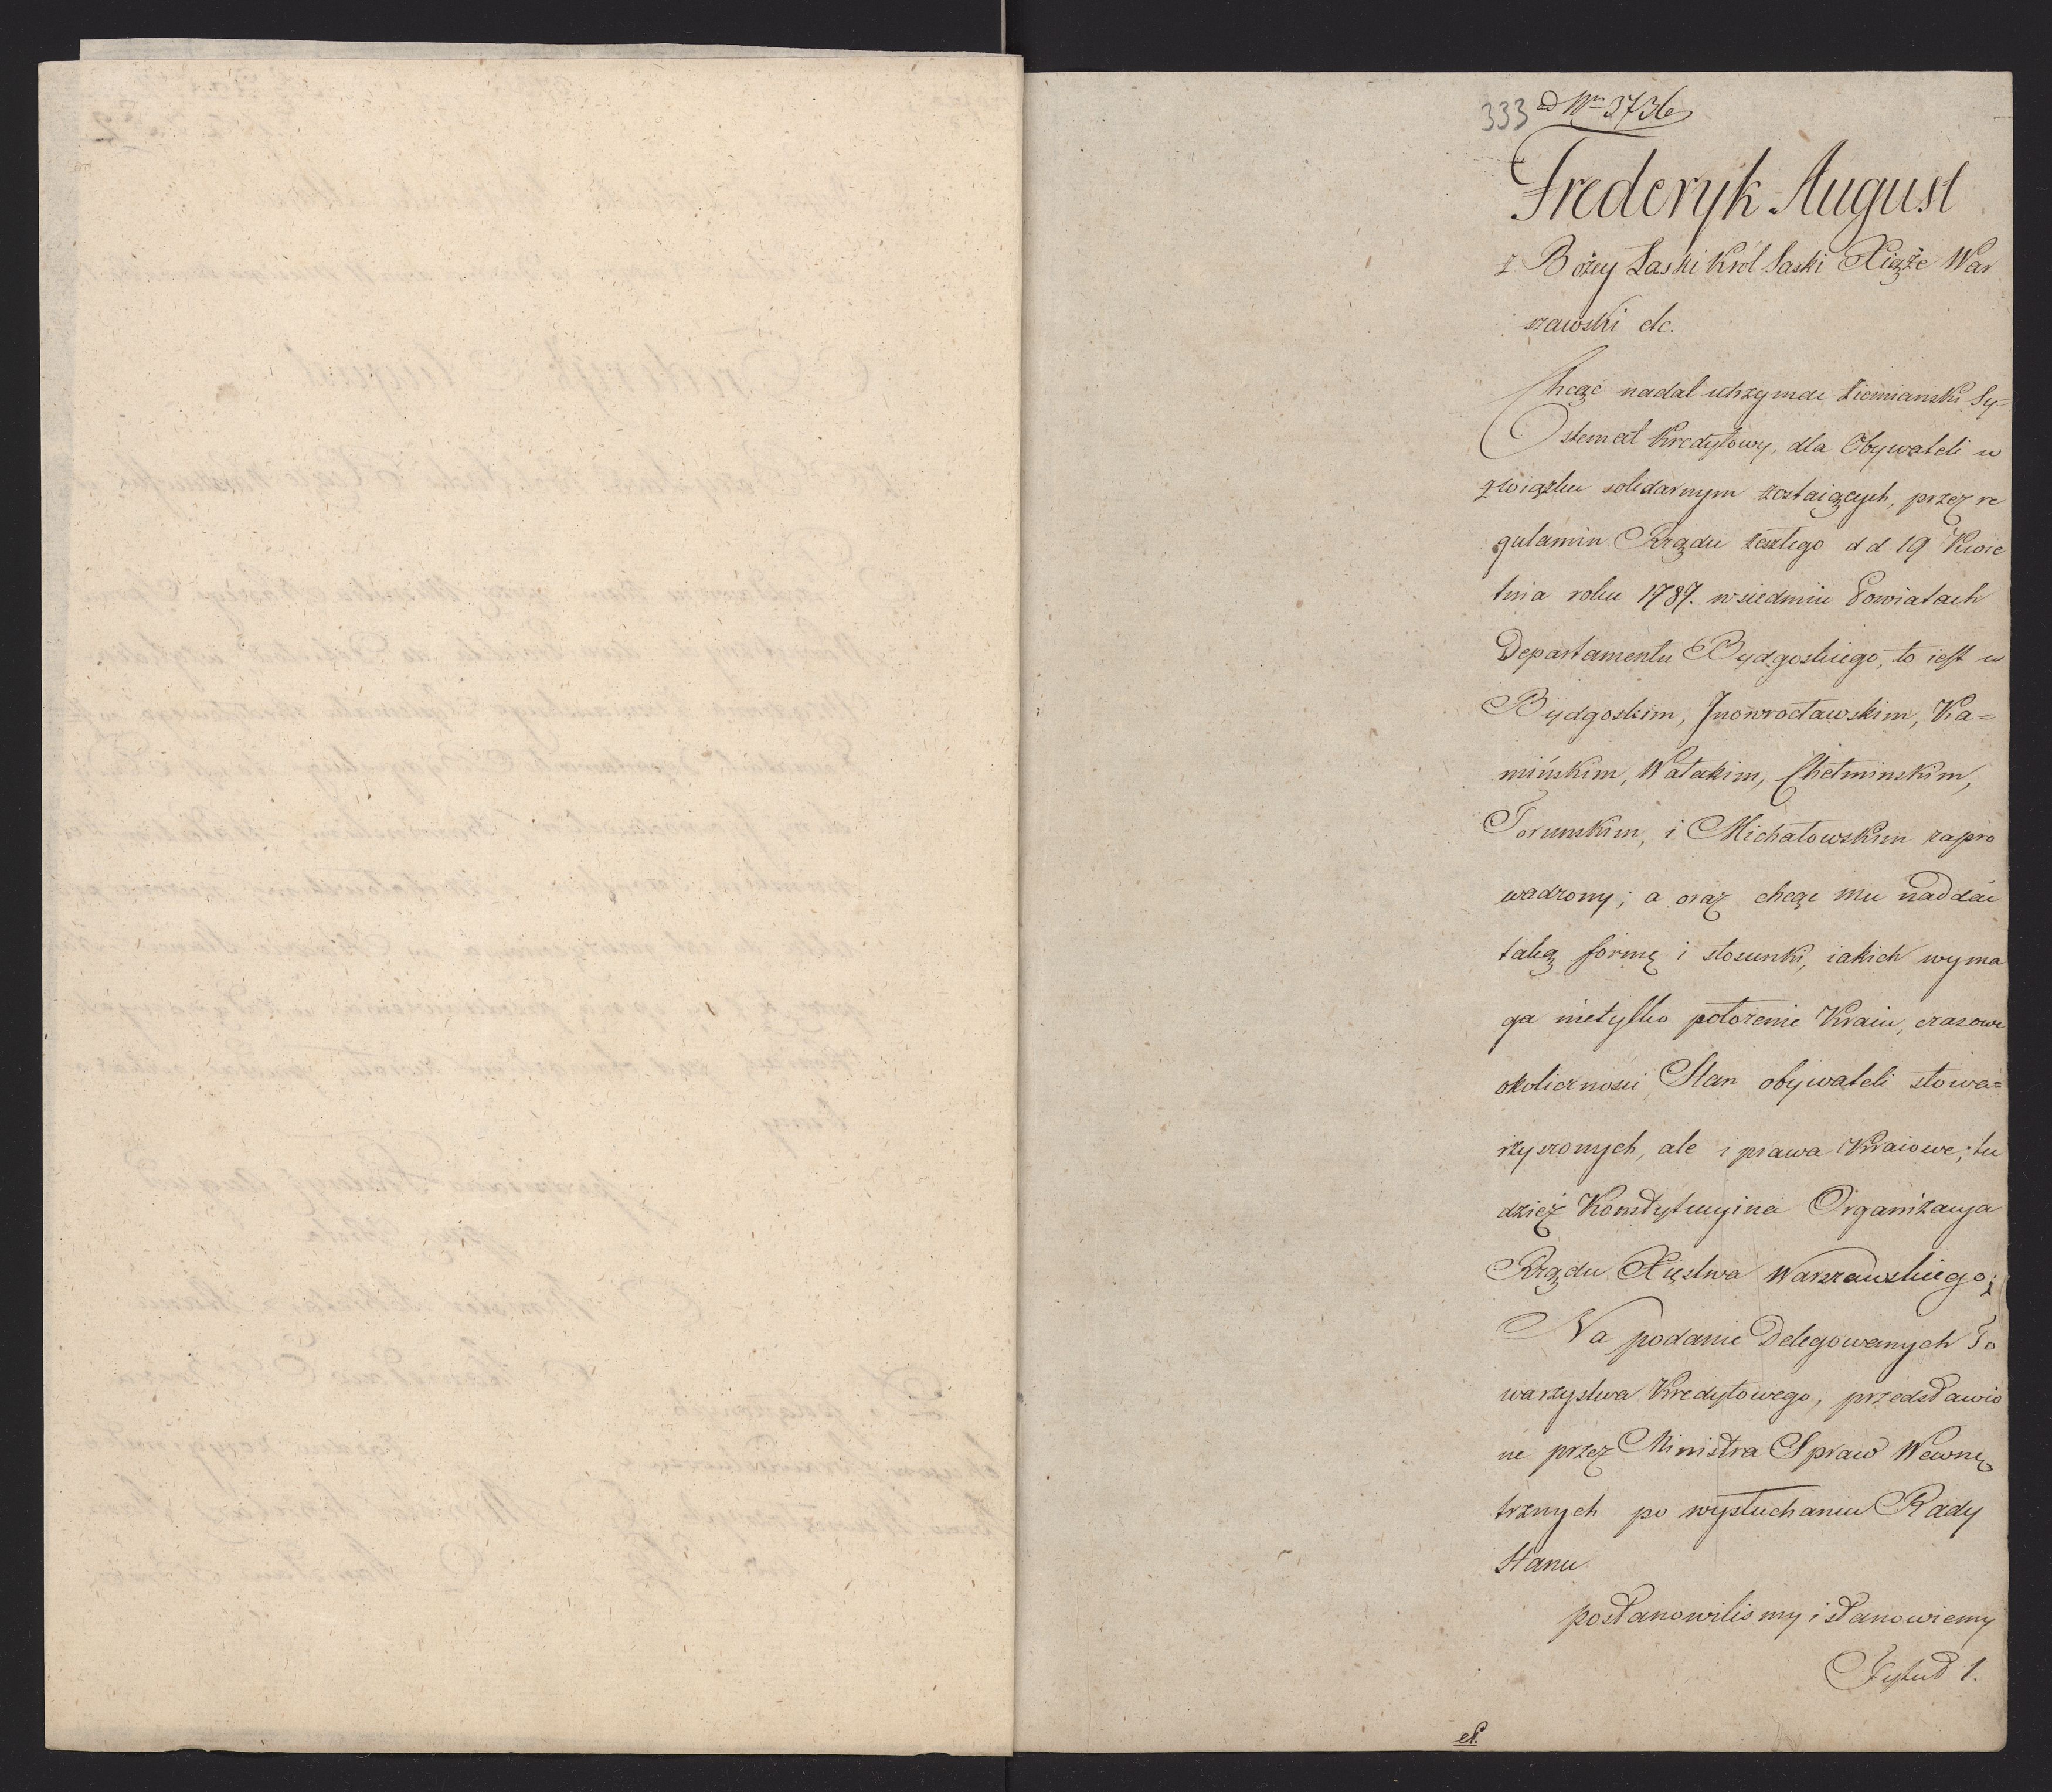 333 ad Nr 3736
Frederyk August
z Bożey Łaski Król Saski Xiąże War
szawski etc.
Chcąc nadal utrzymać Ziemianski Sy=
stemat Kredytowy, dla Obywateli w
związku solidarnym zostaiących, przez re
gulamin Rządu zeszłego d d 19 Kwie
tnia roku 1787. w siedmiu Powiatach
Departamentu Bydgoskiego, to iest w
Bydgoskim, Jnowrocławskim, Ka=
mińskim, Wałeckim, Chełminskim,
Torunskim, i Michałowskim zapro
wadzony; a oraz chcąc mu naddać
taką formę i stosunki, iakich wyma
ga nietylko położenie Kraiu, czasowe
okoliczności, Stan obywateli stowa=
rzyszonych, ale i prawa Kraiowe; tu
dzież Konstytucyina Organizacya
Rządu Xięstwa Warszawskiego;
Na podanie Delegowanych To
warzystwa Kredytowego, przedstawio
ne przez Ministra Spraw Wewnę
trznych po wysłuchaniu Rady
Stanu
postanowilismy i stanowiemy
Tytuł 1.